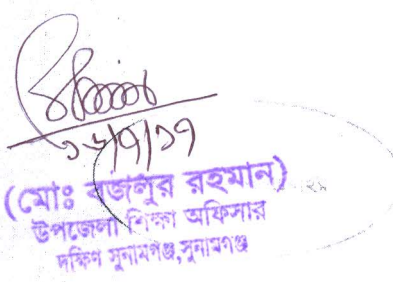 ১৬/৭/১৭
(মোঃ বজলুর রহমান)
উপজেলা শিক্ষা অফিসার
দক্ষিণ সুনামগঞ্জ,সুনামগঞ্জ